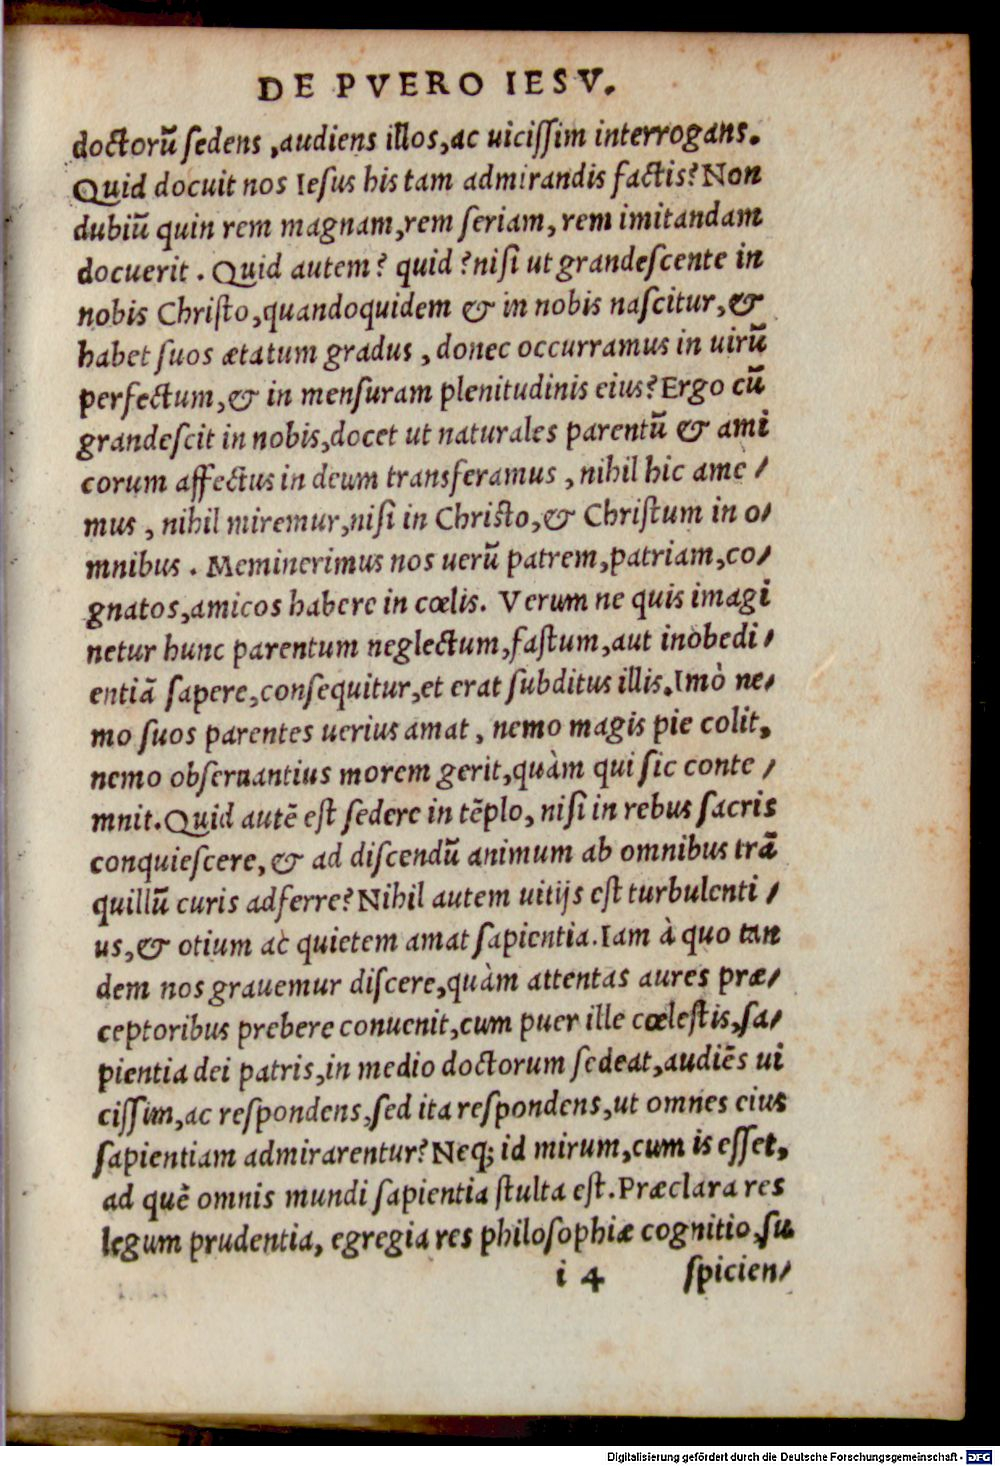 DE PVERO IESV.
doctorū ſedens, audiens illos, ac uiciſſim interrogans.
Quid docuit nos Ieſus his tam admirandis factis? Non
dubiū quin rem magnam, rem ſeriam, rem imitandam
docuerit. Quid autem? quid? niſi ut grandeſcente in
nobis Chriſto, quandoquidem & in nobis naſcitur, &
habet ſuos ætatum gradus, donec occurramus in uirū
perfectum, & in menſuram plenitudinis eius? Ergo cū
grandeſcit in nobis, docet ut naturales parentū & ami
corum affectus in deum transferamus, nihil hic ame/
mus, nihil miremur, niſi in Chriſto, & Chriſtum in o/
mnibus. Meminerimus nos uerū patrem, patriam, co/
gnatos, amicos habere in cœlis. Verum ne quis imagi
netur hunc parentum neglectum, faſtum, aut inobedi/
entiā ſapere, conſequitur, et erat ſubditus illis. Imò ne/
mo ſuos parentes uerius amat, nemo magis pie colit,
nemo obſeruantius morem gerit, quàm qui ſic conte/
mnit. Quid autē eſt ſedere in tēplo, niſi in rebus ſacris
conquieſcere, & ad diſcendū animum ab omnibus trā
quillū curis adferre? Nihil autem uitijs eſt turbulenti/
us, & otium ac quietem amat ſapientia. Iam à quo tan
dem nos grauemur diſcere, quàm attentas aures præ/
ceptoribus prebere conuenit, cum puer ille cœleſtis, ſa/
pientia dei patris, in medio doctorum ſedeat, audiēs ui
ciſſim, ac reſpondens, ſed ita reſpondens, ut omnes eius
ſapientiam admirarentur? Neq; id mirum, cum is eſſet,
ad quē omnis mundi ſapientia ſtulta eſt. Præclara res
legum prudentia, egregia res philoſophiæ cognitio, ſu
i 4 ſpicien/
Digitalisierung gefördert durch die Deutsche Forschungsgemeinschaft - DFG